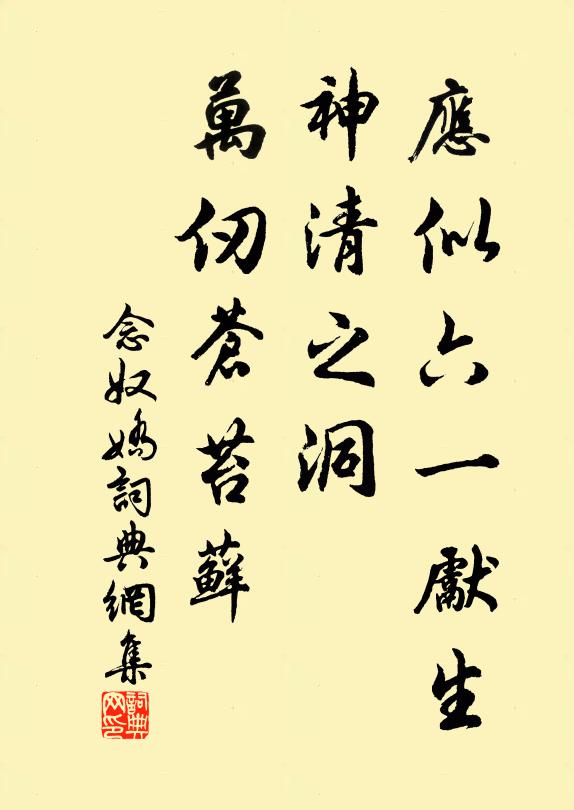 應似六一獻生
神清之洞
萬仞蒼苔蘚
念奴嬌詞典網集
詞典
网印